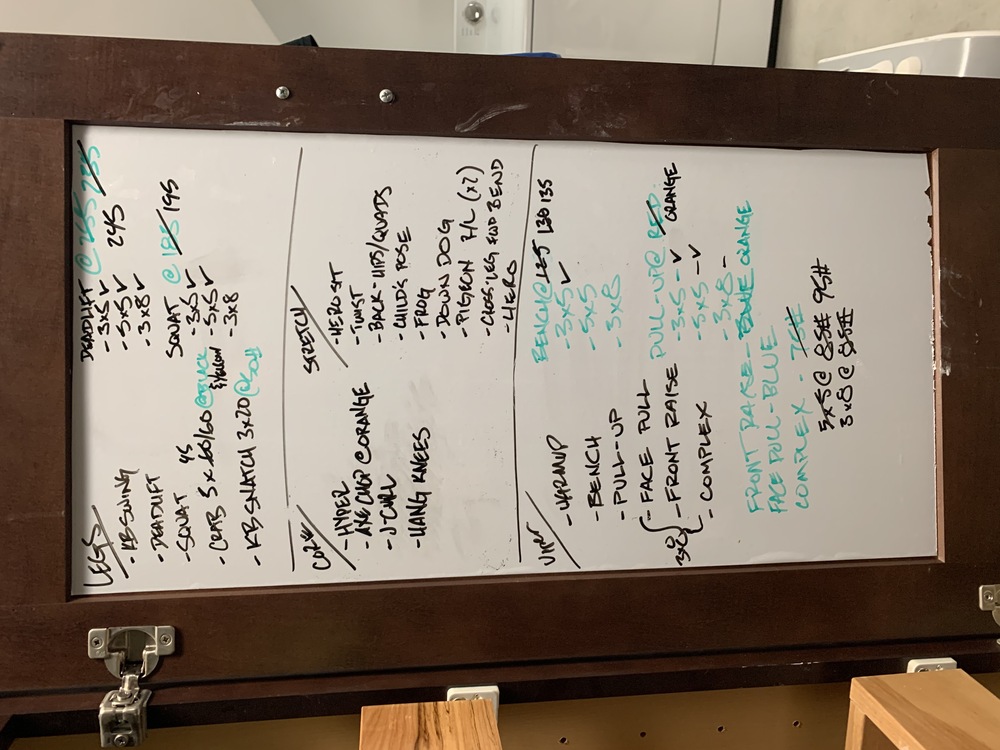 LEGS
- KB SWING
- DEADLIFT
- SQUAT 45
- CRAB 3 x 60/60 @ BLACK & YELLOW
- KB SNATCH 3x20 @ 50#
DEADLIFT @
- 3x5 ✓ 245
- 5x5 ✓
- 3x8 ✓
SQUAT @ 185 195
- 3x5 ✓
- 5x5 ✓
- 3x8
CORE
- HYPER
- AXE CHOP @ ORANGE
- J-CURL
- HANG KNEES
STRETCH
- HERO ST
- TWIST
- BACK - HIPS/QUADS
- CHILDS POSE
- FROG
- DOWN DOG
- PIGEON R/L (x2)
- CROSS-LEG FWD BEND
- HERO
UPPER
- WARMUP
- BENCH
- PULL-UP
- FACE PULL
- FRONT RAISE
- COMPLEX
BENCH @ 130 135
- 3x5 ✓
- 5x5
- 3x8
PULL-UP @ RED ORANGE
- 3x5 - ✓
- 5x5 - ✓
- 3x8 -
FRONT RAISE - BLUE ORANGE
FACE PULL - BLUE
COMPLEX - 75#
5x5 @ 85# 95#
3x8 @ 85#